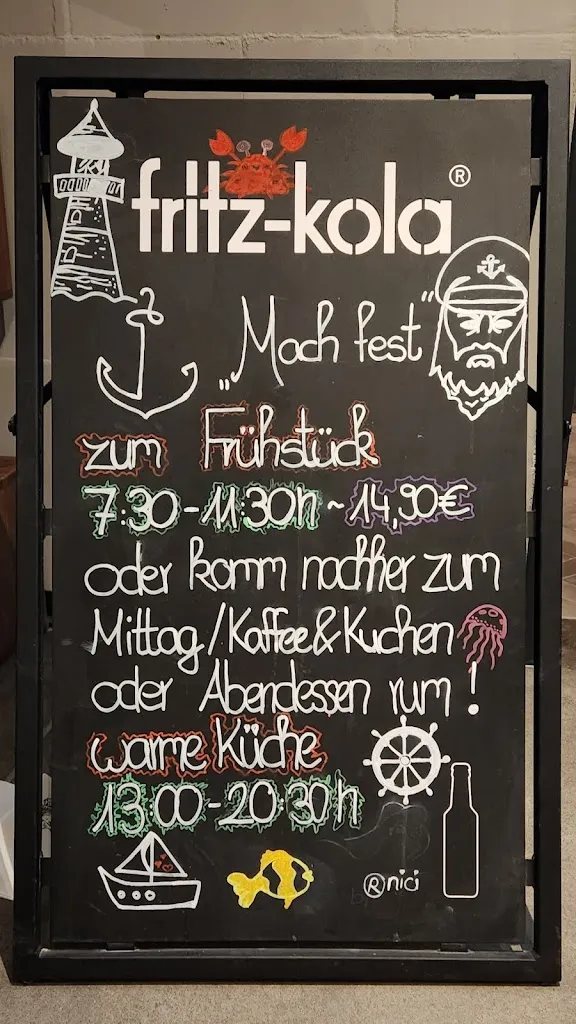 fritz-kola®
„Mach fest"
zum Frühstück
7:30-11:30h ~ 14,90€
oder komm nachher zum
Mittag/Kaffee&Kuchen
oder Abendessen rum!
warme Küche
13:00-20:30h
®nici